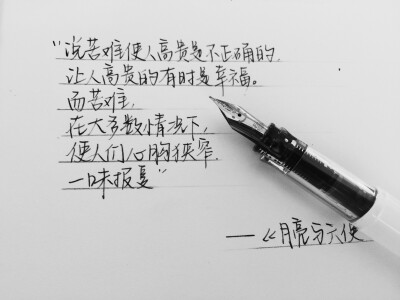 “说苦难使人高贵是不正确的，
让人高贵的有时是幸福。
而苦难，
在大多数情况下，
使人们心胸狭窄，
一味报复”
——《月亮与六便